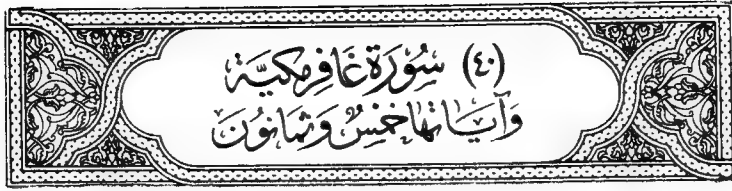 (٤٠) سُورَة غَافِر مَكيَّة
وَآيَاتها خَمْسٌ وَثَمَانُونَ